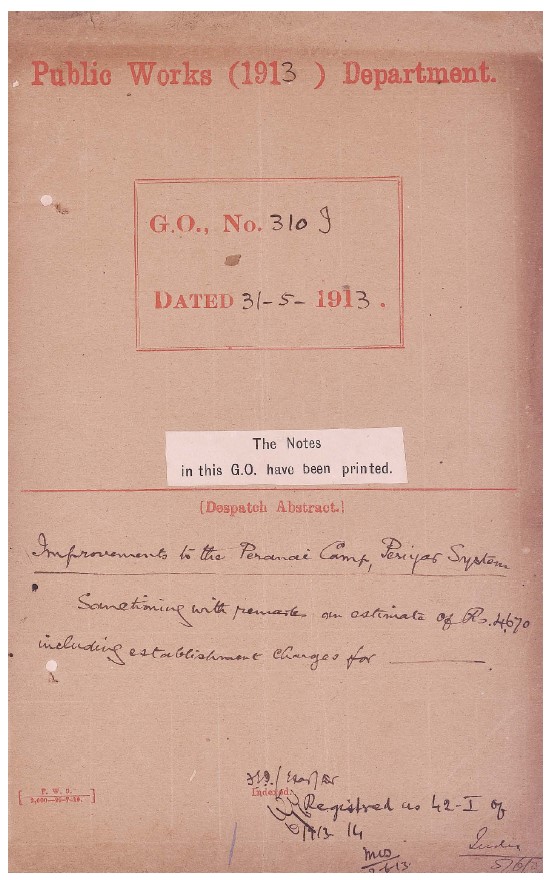 Public Works (1913) Department.
G.O., No. 310 I
DATED 31-5-1913.
The Notes
in this G.O. have been printed.
(Despatch Abstract.)
Improvements to the Peranai Camp, Periyar System
Sanctioning with remarks an estimate of Rs. 4,670
including establishment charges for
P. W. D.
Indexed.
Registred as 42-I of
1913-14
5/6/3